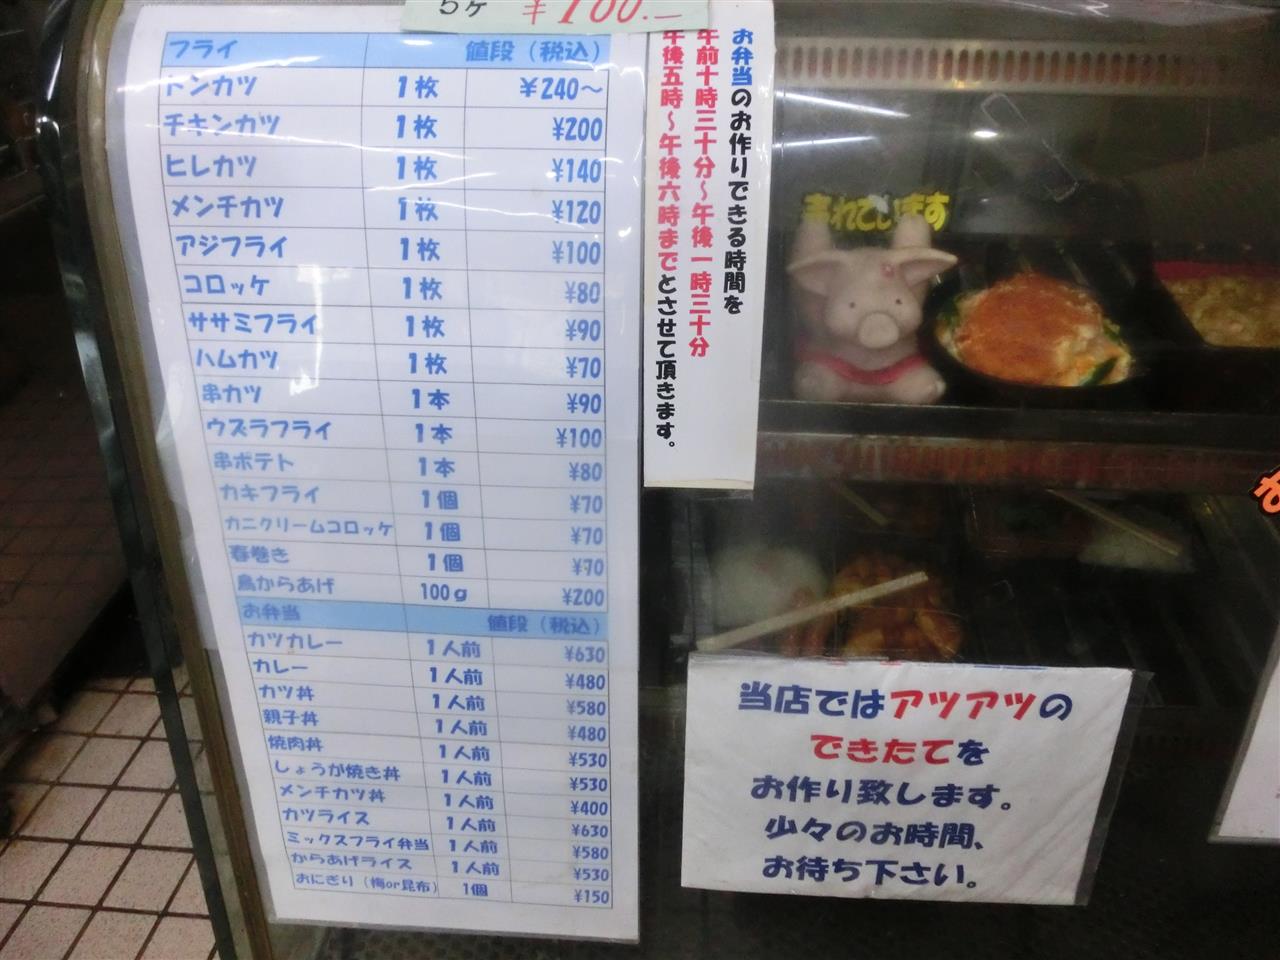 5ケ ¥100.—
フライ 値段（税込）
トンカツ 1枚 ¥240～
チキンカツ 1枚 ¥200
ヒレカツ 1枚 ¥140
メンチカツ 1枚 ¥120
アジフライ 1枚 ¥100
コロッケ 1枚 ¥80
ササミフライ 1枚 ¥90
ハムカツ 1枚 ¥70
串カツ 1本 ¥90
ウズラフライ 1本 ¥100
串ポテト 1本 ¥80
カキフライ 1個 ¥70
カニクリームコロッケ 1個 ¥70
春巻き 1個 ¥70
鳥からあげ 100g ¥200
お弁当 値段（税込）
カツカレー 1人前 ¥630
カレー 1人前 ¥480
カツ丼 1人前 ¥580
親子丼 1人前 ¥480
焼肉丼 1人前 ¥530
しょうが焼き丼 1人前 ¥530
メンチカツ丼 1人前 ¥400
カツライス 1人前 ¥630
ミックスフライ弁当 1人前 ¥580
からあげライス 1人前 ¥530
おにぎり（梅or昆布） 1個 ¥150
お弁当のお作りできる時間を
午前十時三十分～午後一時三十分
午後五時～午後六時までとさせて頂きます。
売れています
当店ではアツアツの
できたてを
お作り致します。
少々のお時間、
お待ち下さい。